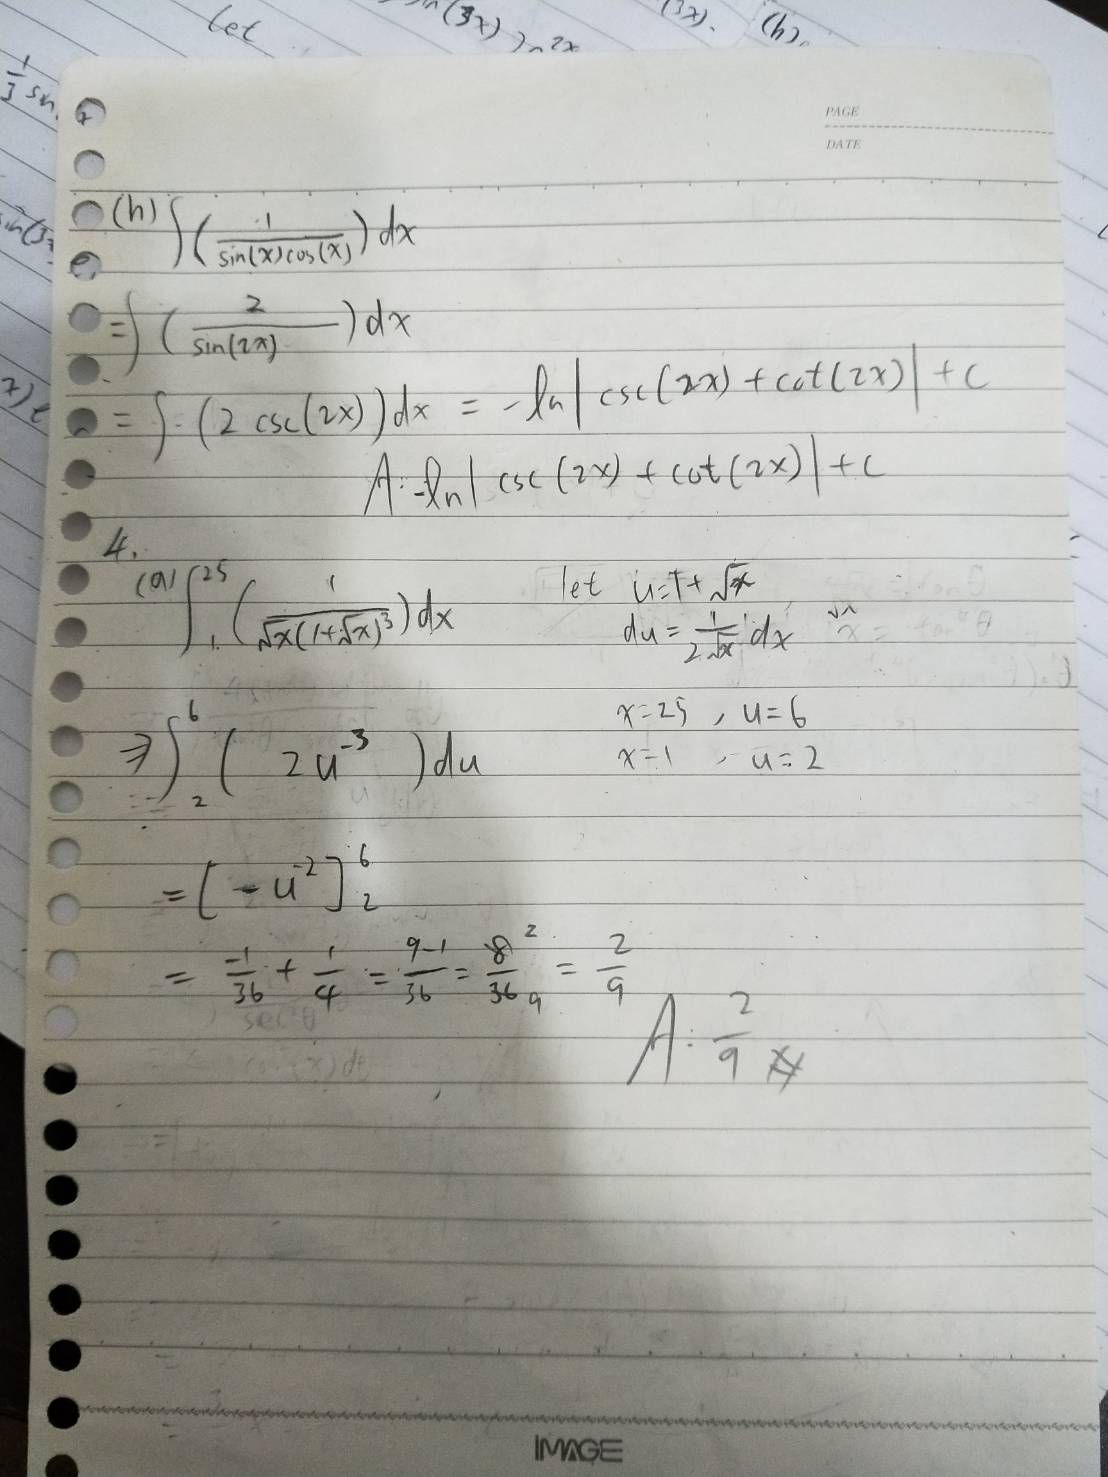 let
n(3x)
(3x).
(h)
1/3 sin
PAGE
DATE
(h) ∫(1/(sin(x)cos(x)))dx
=∫(2/sin(2x))dx
=∫(2 csc(2x))dx = -ln|csc(2x)+cot(2x)|+c
A:-ln|csc(2x)+cot(2x)|+c
4.
(a) ∫₁²⁵(1/(√x(1+√x)³))dx let u=1+√x
du=1/(2√x) dx
x=25, u=6
⇒∫₂⁶(2u⁻³)du x=1, u=2
=[-u⁻²]₂⁶
= -1/36 + 1/4 = (9-1)/36 = 8/36 2 9 = 2/9
A: 2/9
IMAGE